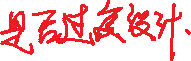 是否过度设计.